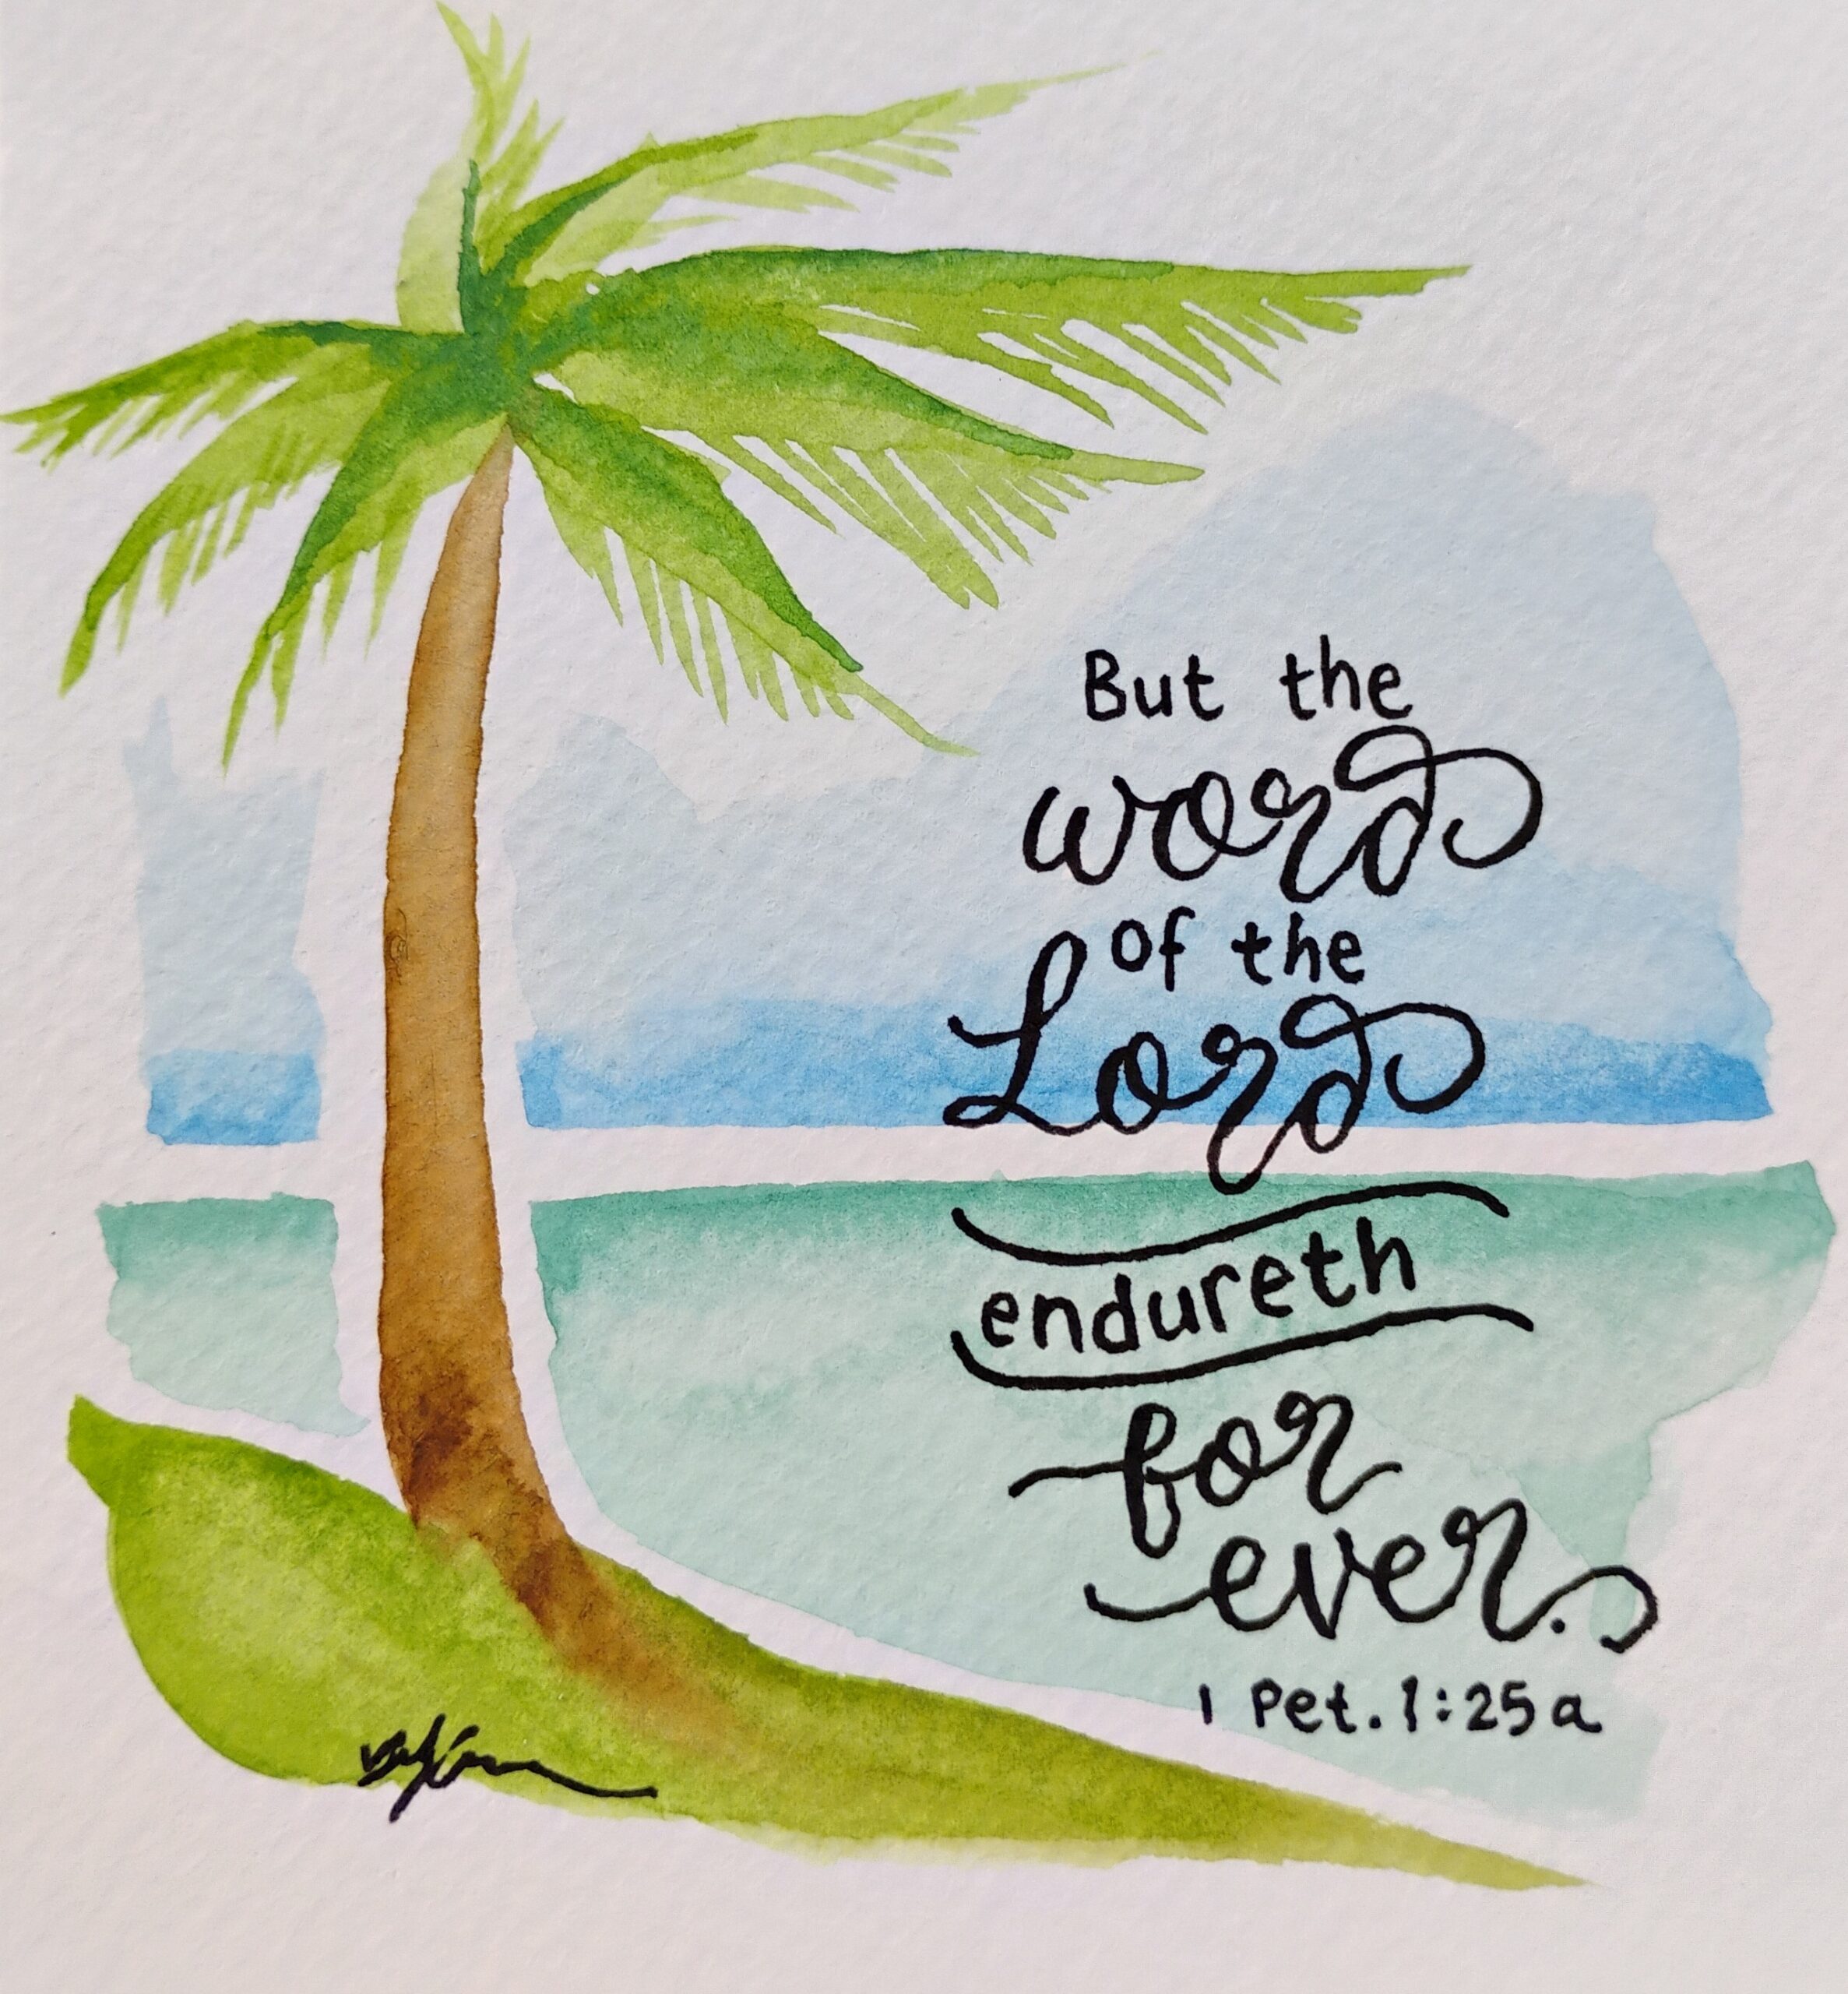 But the
word
of the
Lord
endureth
for
ever.
1 Pet. 1:25a